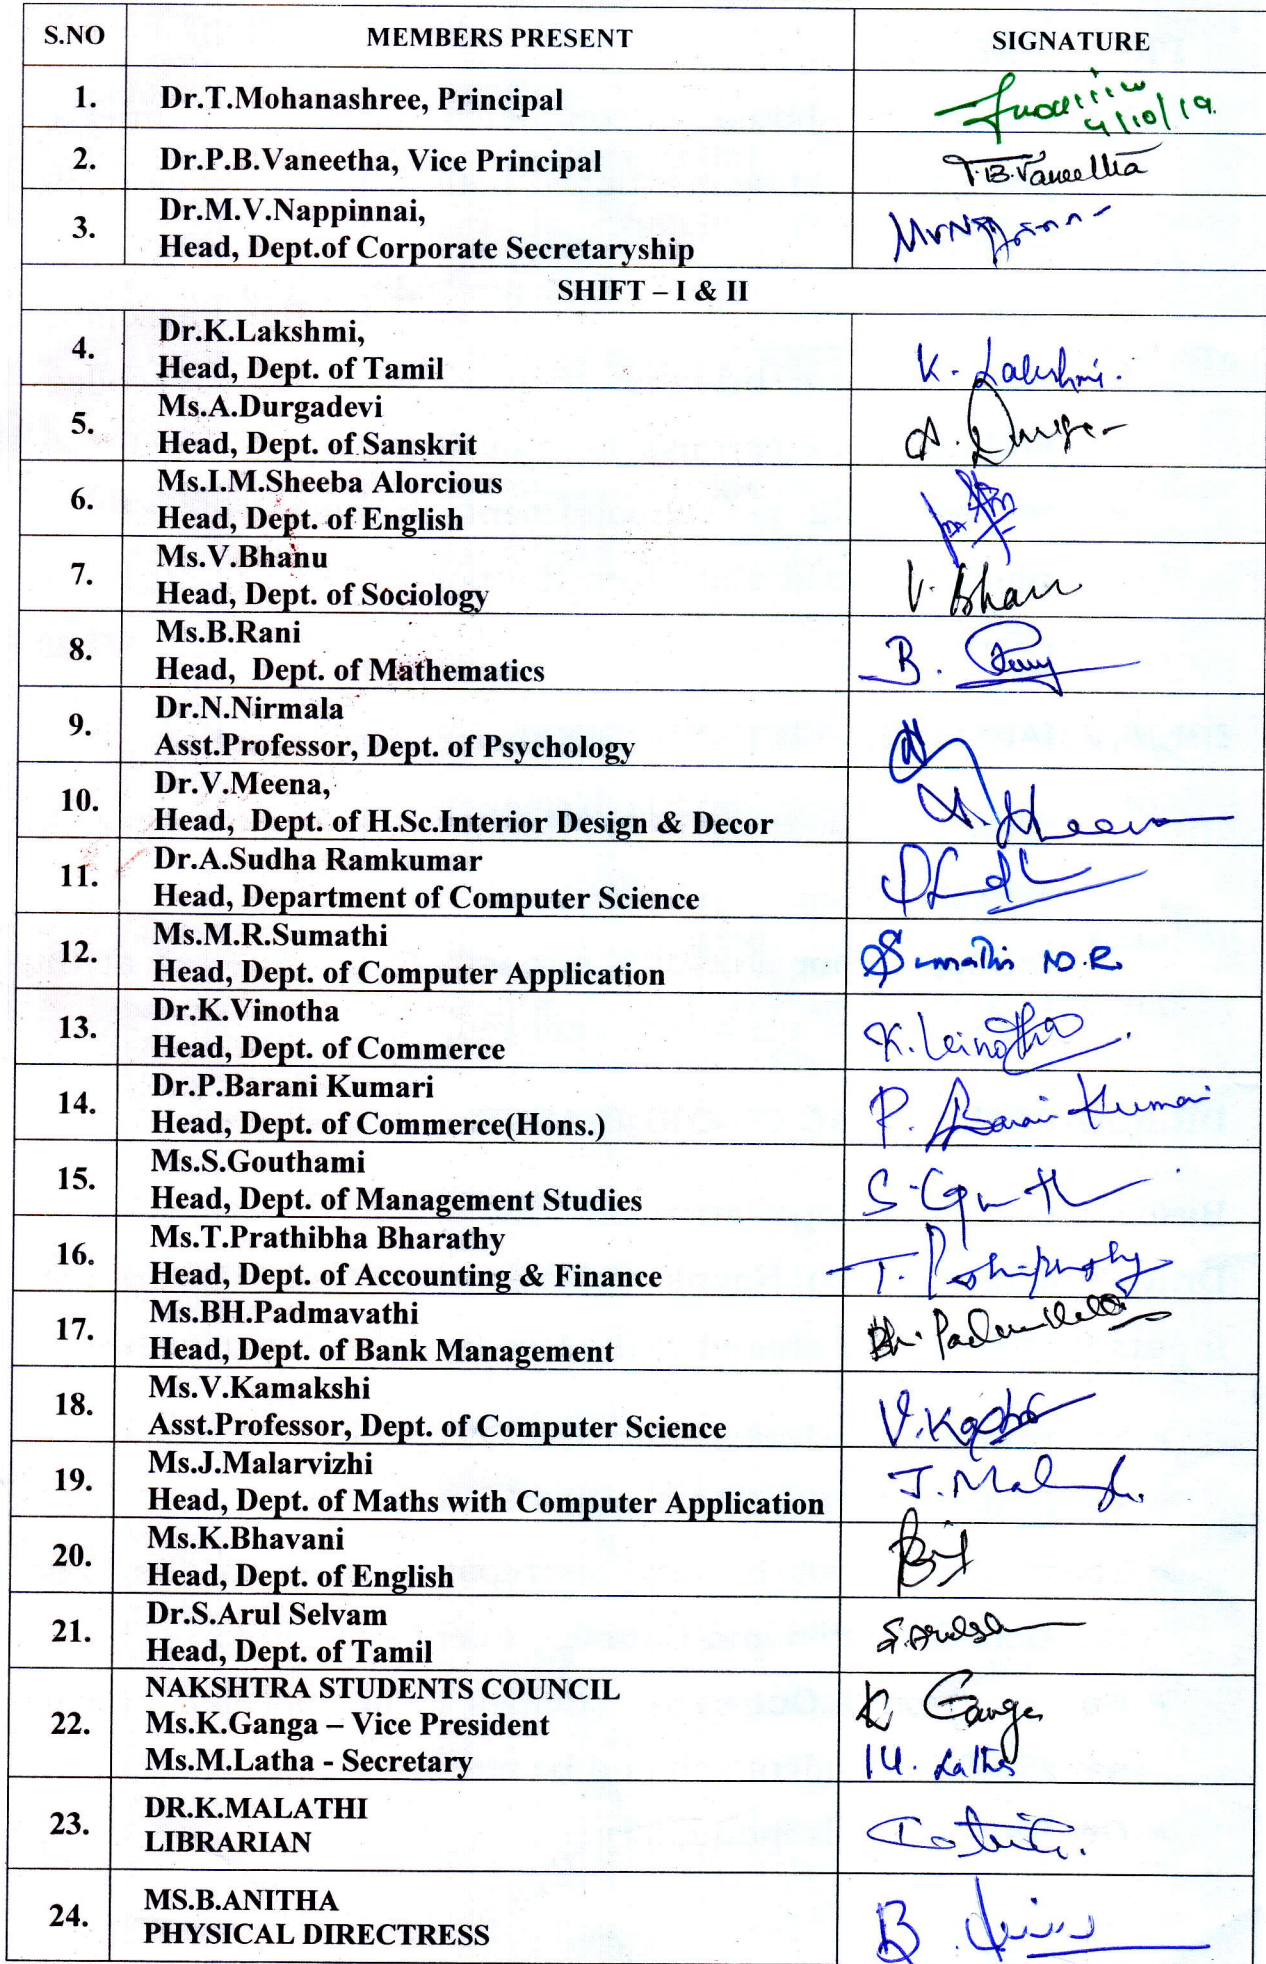 S.NO MEMBERS PRESENT SIGNATURE
1. Dr.T.Mohanashree, Principal
4/10/19
2. Dr.P.B.Vaneetha, Vice Principal P.B.Vaneetha
3. Dr.M.V.Nappinnai,
Head, Dept.of Corporate Secretaryship
SHIFT – I & II
4. Dr.K.Lakshmi,
Head, Dept. of Tamil K. Lakshmi.
5. Ms.A.Durgadevi
Head, Dept. of Sanskrit A. Durga
6. Ms.I.M.Sheeba Alorcious
Head, Dept. of English
7. Ms.V.Bhanu
Head, Dept. of Sociology V. Bhanu
8. Ms.B.Rani
Head, Dept. of Mathematics B.
9. Dr.N.Nirmala
Asst.Professor, Dept. of Psychology
10. Dr.V.Meena,
Head, Dept. of H.Sc.Interior Design & Decor
11. Dr.A.Sudha Ramkumar
Head, Department of Computer Science
12. Ms.M.R.Sumathi
Head, Dept. of Computer Application Sumathi M.R.
13. Dr.K.Vinotha
Head, Dept. of Commerce K. Vinotha.
14. Dr.P.Barani Kumari
Head, Dept. of Commerce(Hons.) P. Barani Kumari
15. Ms.S.Gouthami
Head, Dept. of Management Studies
16. Ms.T.Prathibha Bharathy
Head, Dept. of Accounting & Finance
17. Ms.BH.Padmavathi
Head, Dept. of Bank Management
18. Ms.V.Kamakshi
Asst.Professor, Dept. of Computer Science
19. Ms.J.Malarvizhi
Head, Dept. of Maths with Computer Application
20. Ms.K.Bhavani
Head, Dept. of English
21. Dr.S.Arul Selvam
Head, Dept. of Tamil
22. NAKSHTRA STUDENTS COUNCIL
Ms.K.Ganga – Vice President K Ganga
Ms.M.Latha - Secretary M. Latha
23. DR.K.MALATHI
LIBRARIAN
24. MS.B.ANITHA
PHYSICAL DIRECTRESS B.